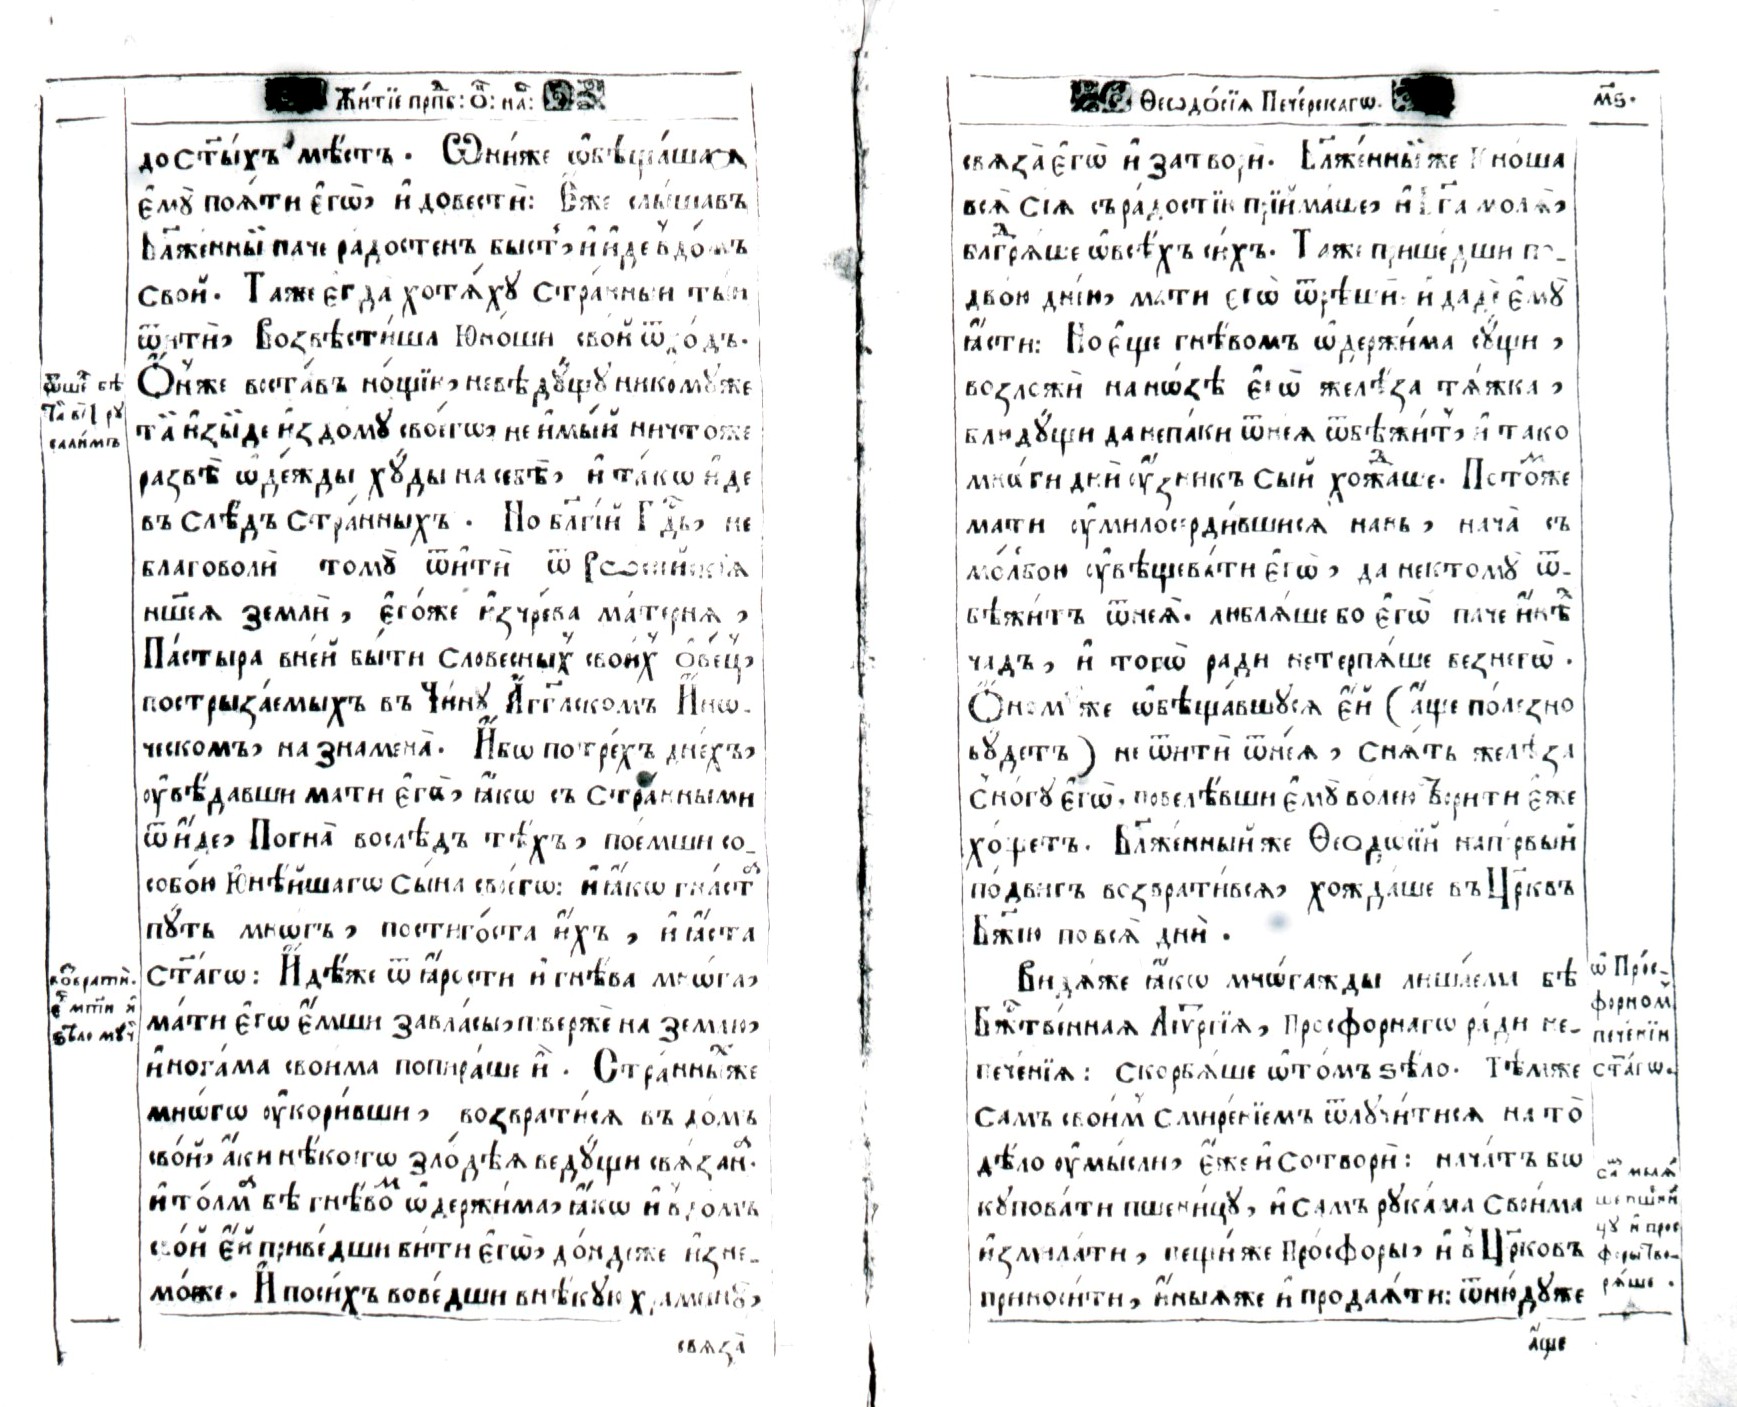 Житїе прпⷣб: ѻ҃: на҃:
до ст҃ы́хъ мѣ́стъ. Ѡни́же ѡ҆бѣща́шася
є҆мꙋ̀ поѧ́ти є҆гѡ̀, и҆ довестѝ: Е҆́же слы́шавъ
Бл҃же́нный паче ра́достенъ бы́стъ, и҆ и҆́де в̾до́мъ
свой. Таже є҆гда̀ хотѧ́хꙋ стра́нныи ты́и
ѿитѝ, Возвѣсти́ша Ю҆́ноши сво́й ѿхо́дъ.
Ѻ҆́нже воста́въ но́щїю, невѣ́дꙋщꙋ никомꙋ́же
та҃ и҆зы́де и҆з̾ до́мꙋ своегѡ̀, не и҆мы́й ничто́же
ра́звѣ ѡ҆де́жды хꙋ́ды на себѣ̀, и҆ та́кѡ и҆́де
въ слѣ́дъ стра́нныхъ. Но бл҃гі́й Гдⷭ҇ь, не
благоволѝ томꙋ̀ ѿитѝ ѿ Рѡссі́йскїѧ
нш҃еѧ землѝ, є҆го́же и҆з̾чре́ва ма́терня,
Па́стыра вне́й бы́ти слове́сныхъ свои́хъ ѻ҆ве́цъ,
постриза́емыхъ въ Чи́нꙋ А҆́гг҃лскомъ И҆́нѡ-
ческомъ, на знамена̀. И҆́бѡ по тре́хъ дне́хъ,
ᲂу҆вѣ́давши мати є҆гѡ̀, ꙗ҆́кѡ съ стра́нными
ѿи҆́де, Погна̀ во слѣ́дъ тѣ́хъ, пое́мши со-
собо́ю Ю҆нѣ́йшагѡ сы́на своегѡ̀: и҆ ꙗ҆́кѡ гна́ста
пꙋ́ть мно́гъ, постиго́ста и҆́хъ, и҆ ꙗ҆́ста
ст҃а́гѡ: И҆дѣ́же ѿ ꙗ҆́рости и҆ гнѣ́ва мно́га,
ма́ти є҆гѡ̀ є҆́мши за вла́сы, пове́рже на зе́млю,
и҆ нога́ма свои́ма попира́ше и҆̀. Стра́нныхже
мно́гѡ ᲂу҆кори́вши, возврати́ся въ до́мъ
сво́й, а҆́ки нѣ́коегѡ злодѣ́ѧ ведꙋ́щи свѧ́зана.
и҆ то́лма бѣ гнѣ́вомъ ѡ҆держи́ма, ꙗ҆́кѡ и҆ в̾до́мъ
сво́й є҆́й приве́дши би́ти є҆гѡ̀, до́ндеже и҆знe-
мо́же. И҆ по си́хъ вове́дши в нѣ́кꙋю хра́минꙋ,
свѧза̀
ѿше́ бѣ
та҃ въ І҆рꙋ
сали́мъ
во́брати̇̀.
є҆ мт҃и и҆
ѕѣ́ло мꙋ́ч
Ѳеѡдо́сїѧ Пече́рскагѡ.
м҃ѕ.
свѧза̀ є҆гѡ̀ и҆ затворѝ. Бл҃же́нныйже Ю҆́ноша
всѧ̀ сїѧ съ ра́достїю прїима́ше, и҆ Б҃га молѧ̀,
блгⷣрѧ́ше ѡ҆ всѣ́хъ си́хъ. Таже прише́дши по-
двою̀ дні́ю, мати є҆гѡ̀ ѿрѣшѝ и҆ дадѐ є҆мꙋ̀
ꙗ҆́сти: Но є҆ще гнѣ́вомъ ѡ҆держи́ма сꙋ́щи,
возложѝ на но́зѣ є҆гѡ̀ желѣ́за тѧ́жка,
блюдꙋ́щи да не па́ки ѿнеѧ̀ ѿбѣжи́тъ, и҆ та́ко
мно́ги дни̇̀ ᲂу҆́зникъ сый хожда́ше. Пото́мже
мати ᲂу҆милосе́рдившися нань, нача̀ съ
мо́лбою ᲂу҆вѣщева́ти є҆гѡ̀, да не ктомꙋ̀ ѿ-
бѣжи́тъ ѿнеѧ̀. люблѧ́ше бо є҆гѡ̀ паче и҆́нѣхъ
ча́дъ, и҆ тогѡ̀ ради не терпѧ́ше без него̀.
Ѻ҆́номꙋже ѡ҆бѣща́вшꙋся є҆́й (а҆́ще поле́зно
бꙋ́детъ) не ѿитѝ ѿнеѧ̀, снѧ́тъ желѣ́за
с̾но́гꙋ є҆гѡ̀, повелѣ́вши є҆мꙋ̀ во́лею творити є҆́же
хо́щетъ. Бл҃же́нныйже Ѳеодо́сїй на пе́рвый
по́двигъ возврати́вся, хожда́ше въ Цр҃ковъ
Бж҃їю по всѧ̀ днѝ.
Ви́дѧже ꙗ҆́кѡ мно́гажды лиша́ема бѣ̀
Бжⷭ҇тве́нная Лїтꙋргі́ѧ, Просфорнагѡ ра́ди не-
пече́нїѧ: Скорбѧ́ше ѡ҆ то́мъ ѕѣ́ло. Тѣ́мже
Самъ свои́мъ смире́нїемъ ѿлꙋчи́тися на то̀
дѣ́ло ᲂу҆мы́сли, Є҆́же и҆ сотворѝ: нача́тъ бѡ
кꙋпова́ти пшени́цꙋ, и҆ са́мъ рꙋка́ма свои́ма
и҆змила́ти, пещи́же Про́сфоры, и҆ в̾ Цр҃ковъ
приноси́ти, и҆́ныѧже и҆ продаѧ́ти: ѿню́дꙋже
а҆́ще
ѡ҆ Про́с-
форном
пече́нїи
ст҃а́гѡ.
са́м мыѧ́
ше пшени́
цꙋ и҆ прос
форы тво-
рѧ́ше.